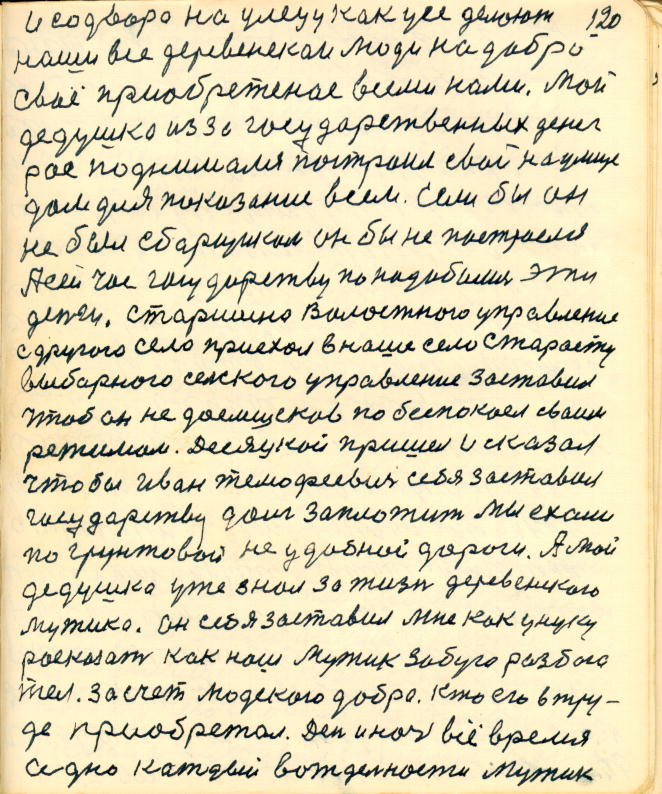 и содвора на улецу как усе делоют 120
наши все деревенскаи люди на добро
своё приобретеное всеми нами. Мой
дедушка из за государственных денег
рас поднимался построил свой на улице
дом для показание всем. Если бы он
не был сбарщиком он бы не построился
А сей час государству понадобились эти
деньги. Старшина Волостного управление
с другого село приехол в наше село старосту
выбарного селского управление заставил
чтоб он не доемщеков по беспокоел своим
режимом. Десяцкой пришел и сказал
чтобы Иван Темофеевич себя заставил
государству долг заплотит мы ехали
по грунтовой не удобной дороги. А мой
дедушка уже знал за жизн деревенского
мужика. он себя заставил мне как унуку
росказат как наш мужик забуго разбога
тел. За счет людского добра. Кто его в тру-
де приобретал. Ден и ноч всё время
одно каждый вожделности мужик